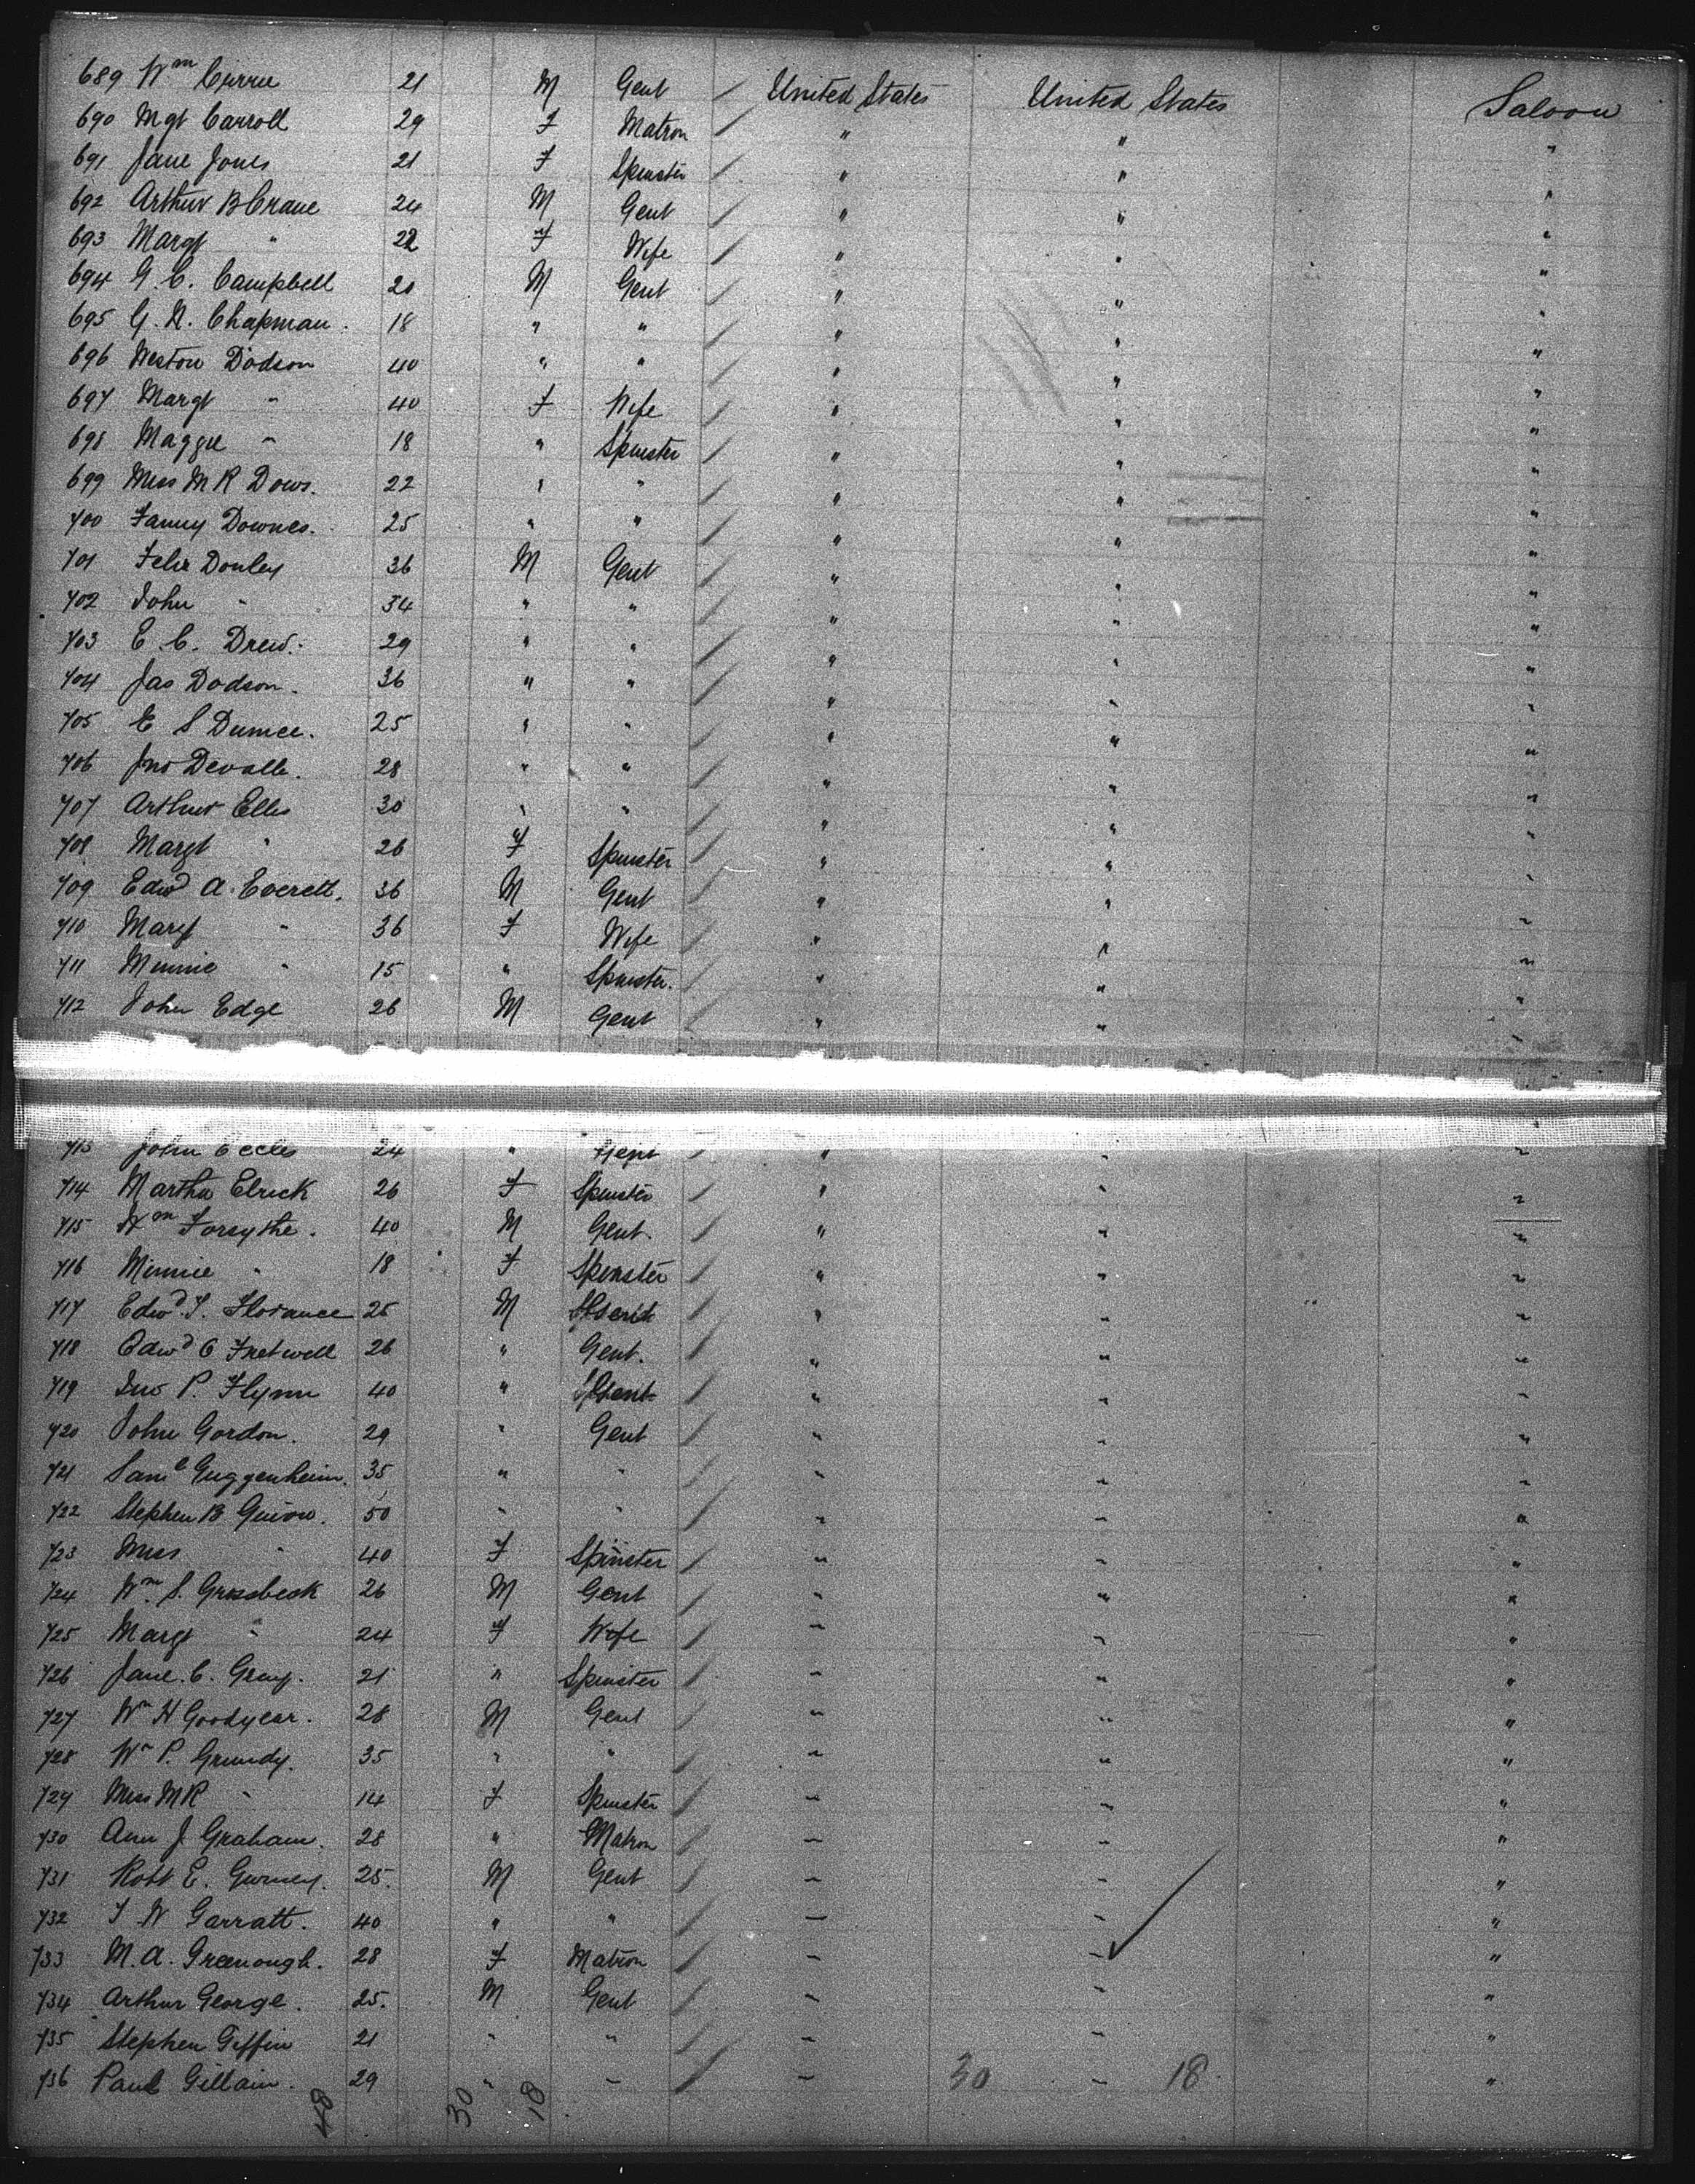 689 Wm Currie 21 M Gent / United States United States Saloon
690 Mgt Carroll 29 F Matron / " " "
691 Jane Jones 21 F Spinster / " " "
692 Arthur B Crane 24 M Gent / " " "
693 Margt " 22 F Wife / " " "
694 G. C. Campbell 20 M Gent / " " "
695 G. N. Chapman. 18 " " / " " "
696 Weston Dodson 40 " " / " " "
697 Margt " 40 F Wife / " " "
698 Maggie " 18 " Spinster / " " "
699 Miss M R Dows. 22 " " / " " "
700 Fanny Downes. 25 " " / " " "
701 Felix Donley 36 M Gent / " " "
702 John " 34 " " / " " "
703 E. C. Drew. 29 " " / " " "
704 Jas Dodson. 36 " " / " " "
705 E S 25 " " / " " "
706 Jno Devalle. 28 " " / " " "
707 Arthur Ellis 30 " " / " " "
708 Margt " 26 F Spinster / " " "
709 Edwd A. Everett. 36 M Gent / " " "
710 Mary " 36 F Wife / " " "
711 Minnie " 15 " Spinster. / " " "
712 John Edge 26 M Gent / " " "
713 John Eccles 24 " Gent / " " "
714 Martha Elrick 26 F Spinster / " " "
715 Wm Forsythe. 40 M Gent. / " " "
716 Minnie " 18 F Spinster / " " "
717 Edwd. T. Florance 25 M Gent / " " "
718 Edwd C Fretwell 26 " Gent. / " " "
719 Jno P. Flynn 40 " Gent / " " "
720 John Gordon. 29 " Gent / " " "
721 Saml Guggenheim. 35 " " / " " "
722 Stephen B 50 " " / " " "
723 Miss " 40 F Spinster / " " "
724 Wm. S. Groesbeck 26 M Gent / " " "
725 Margt " 24 F Wife / " " "
726 Jane. C. Gray. 21 " Spinster / " " "
727 Wm H Goodyear. 28 M Gent / " " "
728 Wm P. Grundy. 35 " " / " " "
729 Miss M R " 14 F Spinster / " " "
730 Ann J Graham. 28 " Matron / " " "
731 Robt E. Gurney. 25. M Gent / " " "
732 T W Garratt. 40 " " / " " "
733 M. A. Greenough. 28 F Matron / " " "
734 Arthur George. 25. M Gent / " " "
735 Stephen Giffin 21 " " / " " "
736 Paul Gillain. 29 " " / " 30 " 18 "
48 30 18